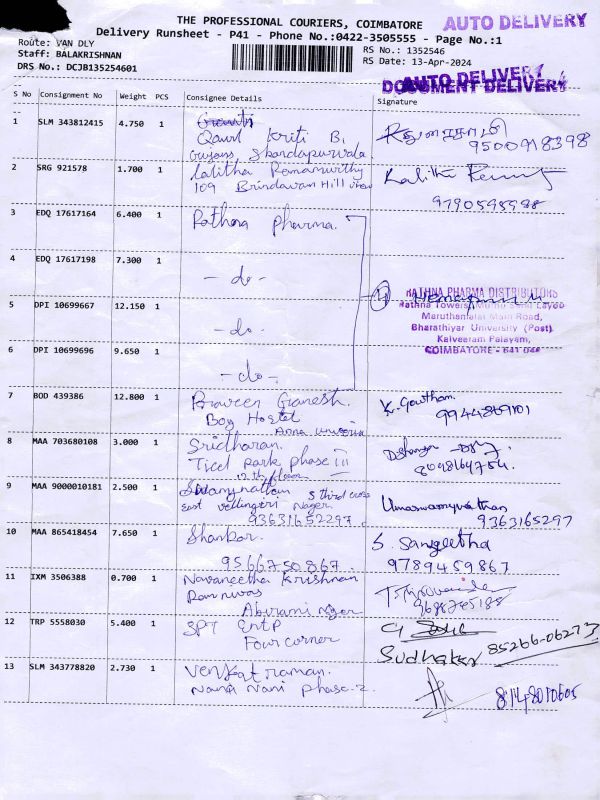 THE PROFESSIONAL COURIERS, COIMBATORE
AUTO DELIVERY
Delivery Runsheet - P41 - Phone No.:0422-3505555 - Page No.:1
Route: VAN DLY
RS No.: 1352546
Staff: BALAKRISHNAN
RS Date: 13-Apr-2024
DRS No.: DCJB135254601
AUTO DELIVERY
DOCUMENT DELIVERY
S No Consignment No Weight PCS Consignee Details Signature
1 SLM 343812415 4.750 1
Kriti B,
9500918398
2 SRG 921578 1.700 1 Lalitha Ramamurthy
109 Brindavan Hill view
9790595598
3 EDQ 17617164 6.400 1 Rathna pharma.
4 EDQ 17617198 7.300 1
- do -
4
RATHNA PHARMA DISTRIBUTORS
5 DPI 10699667 12.150 1
Rathna Towers,
Maruthamalai Main Road,
- do -
Bharathiyar University (Post)
Kalveeram Palayam,
6 DPI 10699696 9.650 1
COIMBATORE - 641 046
- do -
7 BOD 439386 12.800 1 Praveen Ganesh.
K. Gowtham.
Boy Hostel
9944869101
Anna
8 MAA 703680108 3.000 1 Sridharan.
Ticel park phase III
12th floor
9 MAA 9000010181 2.500 1 Swaminathan 5 third cross
East vellingiri Nager
Umaswamynathan
9363165297
9363165297
10 MAA 865418454 7.650 1 Shankar.
S. Sangeetha
9566750867.
9789459867
11 IXM 3506388 0.700 1 Navaneetha Krishnan
Abirami Nger
9688785188
12 TRP 5558030 5.400 1 SPT EntP
Four corner
Sudhakar 85266-06273
13 SLM 343778820 2.730 1 Venkatraman.
Nana Nani Phase-2.
8148010605